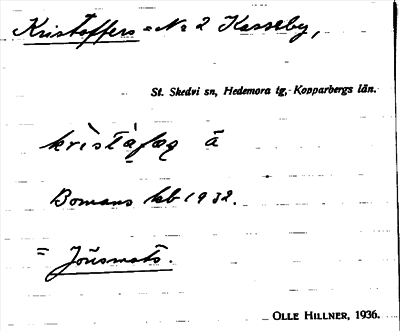 Kristoffers = No 2 Kasseby,
St. Skedvi sn, Hedemora tg, Kopparbergs län.
krìstàfæq ā
Bomans kb 1932.
= Jöusmats.
OLLE HILLNER, 1936.